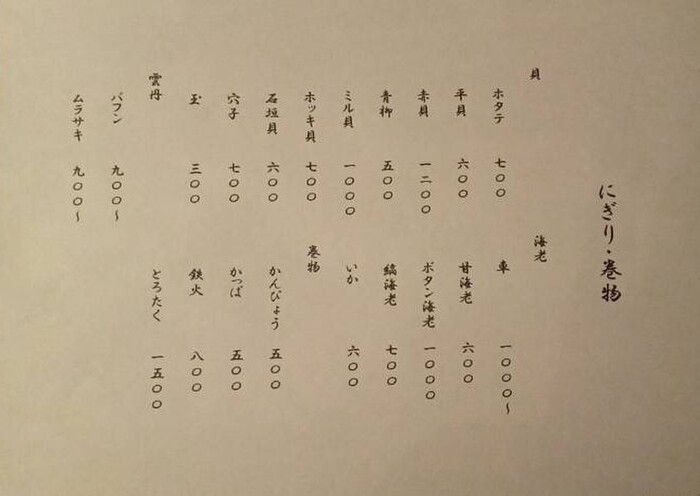 にぎり・巻物
貝
ホタテ 七〇〇
平貝 六〇〇
赤貝 一二〇〇
青柳 五〇〇
ミル貝 一〇〇〇
ホッキ貝 七〇〇
石垣貝 六〇〇
穴子 七〇〇
玉 三〇〇
雲丹
バフン 九〇〇~
ムラサキ 九〇〇~
海老
車 一〇〇〇~
甘海老 六〇〇
ボタン海老 一〇〇〇
縞海老 七〇〇
いか 六〇〇
巻物
かんぴょう 五〇〇
かっぱ 五〇〇
鉄火 八〇〇
とろたく 一五〇〇